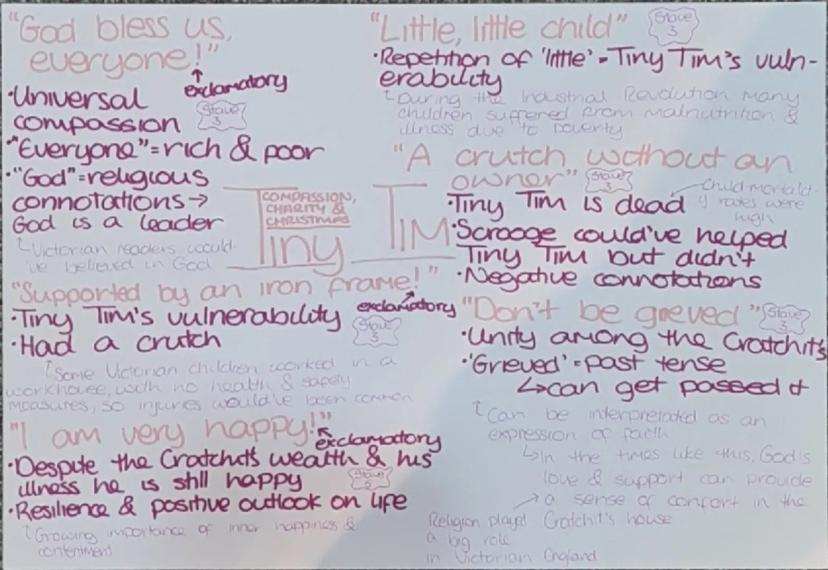 "God bless us,
everyone!"
exclamatory
•Universal
compassion
Stave
3
•"Everyone"=rich & poor
•"God"=religious
connotations→
God is a leader
Victorian readers would
've believed in God
"Supported by an iron frame!"
exclamatory
•Tiny Tim's vulnerability
•Had a crutch
Stave
3
Some Victorian children worked in a
workhouse, with no health & safety
measures, so injuries would've been common
"I am very happy!"
exclamatory
•Despite the Cratchit's wealth & his
illness he is still happy
Stave
•Resilience & positive outlook on life
Growing importance of inner happiness &
contentment
COMPASSION,
CHARITY &
CHRISTMAS
Tiny Tim
"Little, little child"
Stave
3
•Repetition of 'little'=Tiny Tim's vuln-
erability
During the Industrial Revolution many
children suffered from malnutrition &
illness due to poverty
"A crutch without an
owner"
Stave
3
child mortalit-
y rates were
high
•Tiny Tim is dead
•Scrooge could've helped
Tiny Tim but didn't
•Negative connotations
"Don't be grieved"
Stave
3
•Unity among the Cratchit's
•'Grieved'=past tense
↳can get passed it
Can be interpretated as an
expression of faith
↳In the times like this, God's
love & support can provide
a sense of comfort in the
Cratchit's house
Religion played
a big role
in Victorian England